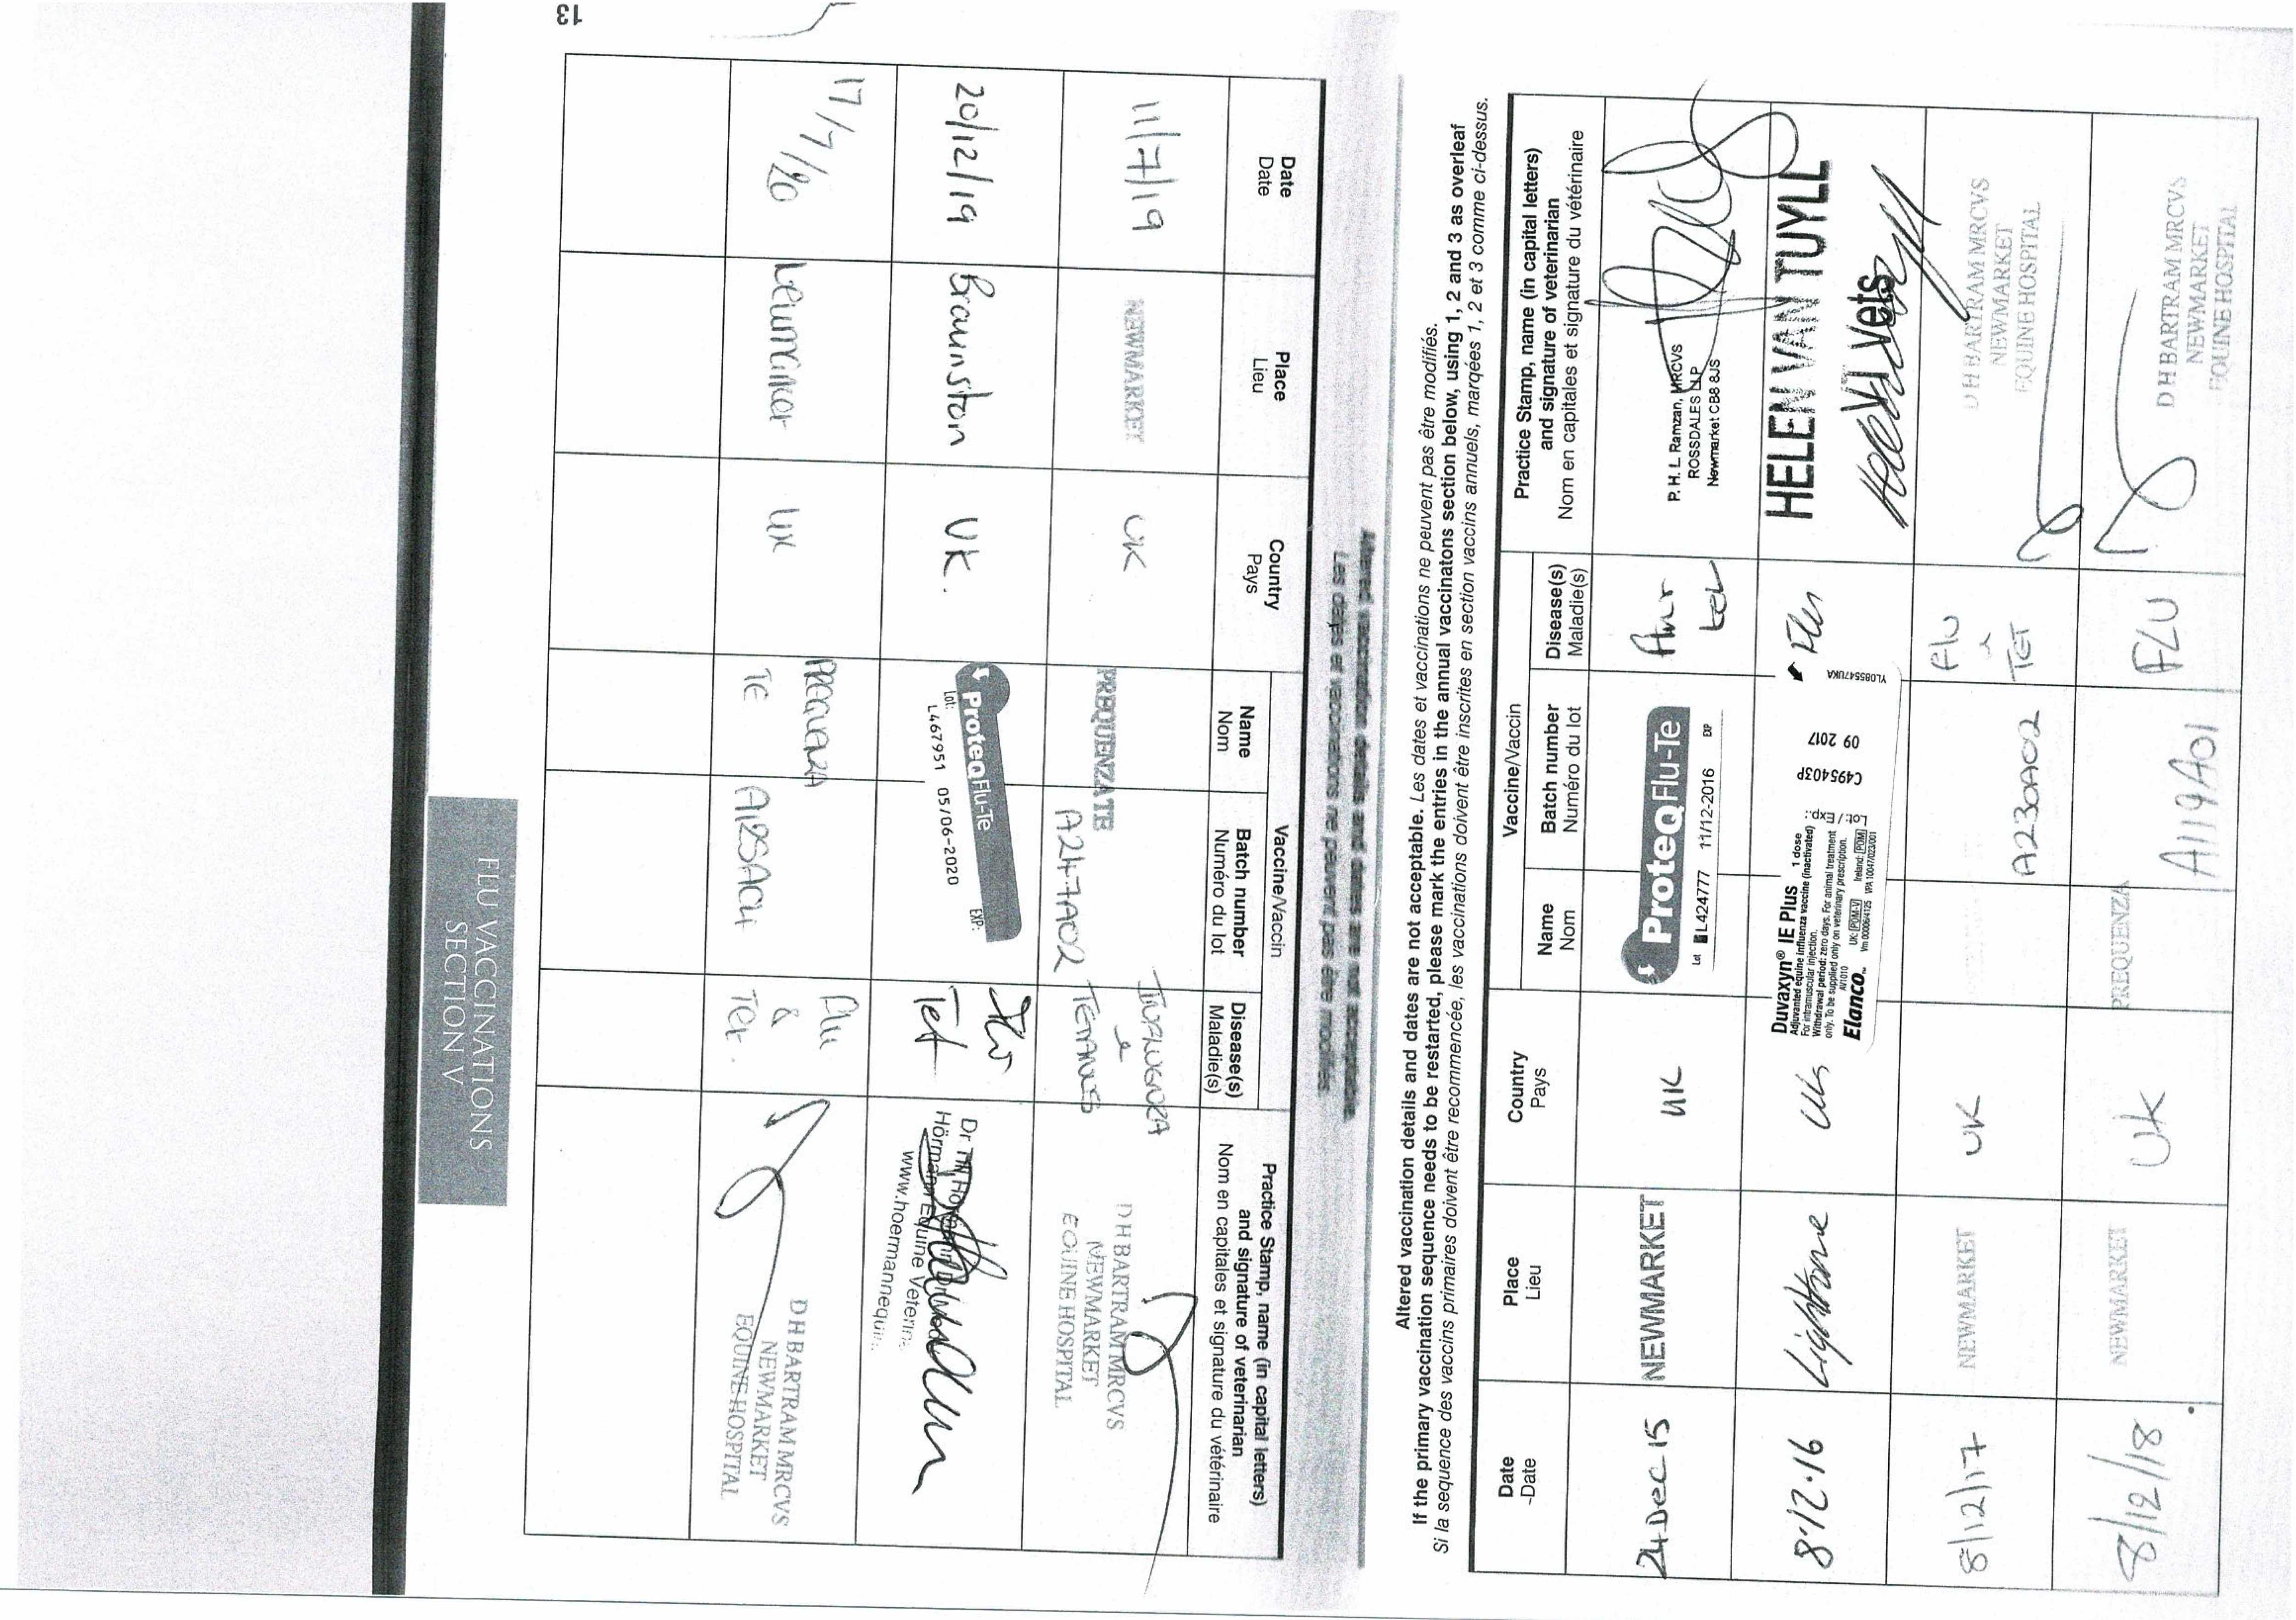 Altered vaccination details and dates are not acceptable. Les dates et vaccinations ne peuvent pas être modifiés.
If the primary vaccination sequence needs to be restarted, please mark the entries in the annual vaccinatons section below, using 1, 2 and 3 as overleaf
Si la sequence des vaccins primaires doivent être recommencée, les vaccinations doivent être inscrites en section vaccins annuels, marqées 1, 2 et 3 comme ci-dessus.
Date
-Date
Place
Lieu
Country
Pays
Vaccine/Vaccin
Name
Nom
Batch number
Numéro du lot
Disease(s)
Maladie(s)
Practice Stamp, name (in capital letters)
and signature of veterinarian
Nom en capitales et signature du vétérinaire
24 Dec 15
NEWMARKET
UK
ProteqFlu-Te
Lot L424777 11/12-2016 EXP
tet
P. H. L. Ramzan, MRCVS
ROSSDALES LLP
Newmarket CB8 8JS
8.12.16
UK
Duvaxyn® IE Plus 1 dose
Adjuvanted equine influenza vaccine (inactivated)
For intramuscular injection.
Withdrawal period: zero days. For animal treatment
only. To be supplied only on veterinary prescription.
AI1010 UK: POM-V Ireland: POM
Elanco™ Vm 00006/4125 VPA 10047/023/001
Lot: / Exp.:
C495403P
09 2017
YL085547UKA
Flu
HELEN VAN TUYLL
Vets
8/12/17
NEWMARKET
UK
A230A02
Flu
&
TET
D H BARTRAM MRCVS
NEWMARKET
EQUINE HOSPITAL
8/12/18
NEWMARKET
UK
PREQUENZA
A119A01
FLU
D H BARTRAM MRCVS
NEWMARKET
EQUINE HOSPITAL
Altered vaccination details and dates are not acceptable.
Les dates et vaccinations ne peuvent pas être modifiés.
Date
Date
Place
Lieu
Country
Pays
Vaccine/Vaccin
Name
Nom
Batch number
Numéro du lot
Disease(s)
Maladie(s)
Practice Stamp, name (in capital letters)
and signature of veterinarian
Nom en capitales et signature du vétérinaire
11/7/19
NEWMARKET
UK
PREQUENZA TE
A247A02
&
TETANUS
D H BARTRAM MRCVS
NEWMARKET
EQUINE HOSPITAL
20/12/19
Braunston
UK.
ProteqFlu-Te
Lot: EXP:
L467951 05/06-2020
Flu
Tet
Equine
www.hoermannequi
17/7/20
Newmarket
UK
PREQUENZA
TE
Flu
&
Tet.
D H BARTRAM MRCVS
NEWMARKET
EQUINE HOSPITAL
13
FLU VACCINATIONS
SECTION V